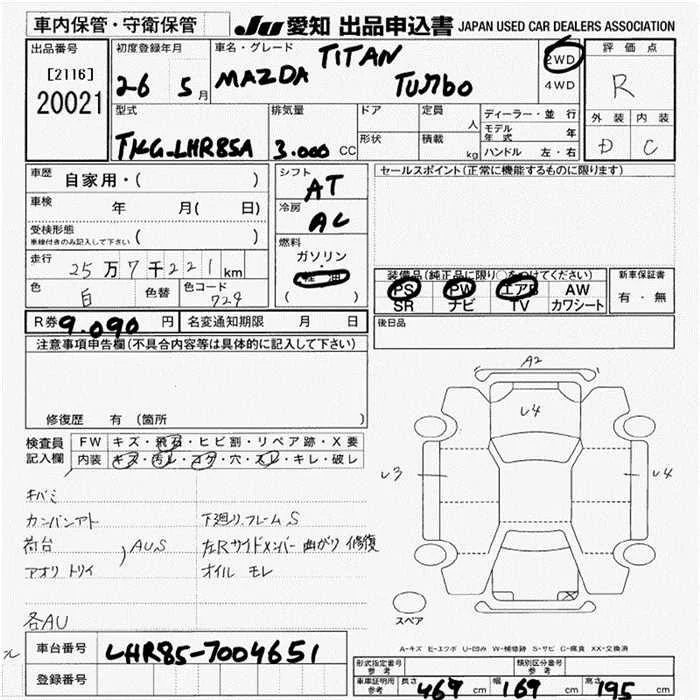 車内保管・守衛保管 JU 愛知 出品申込書 JAPAN USED CAR DEALERS ASSOCIATION
出品番号
[2116]
20021
初度登録年月
26 5月
車名・グレード
MAZDA TITAN Turbo
2WD
4WD
評価点
R
外装 内装
D C
型式
TKG-LHR85A
排気量
3.000 CC
ドア
形状
定員 人
積載 kg
ディーラー・並行
モデル年式 年
ハンドル 左・右
車歴 自家用・( )
車検 年 月(日)
受検形態
車検付きのみ記入して下さい ( )
走行 25万7千221km
色 白 色替 色コード 729
シフト AT
冷房 AC
燃料
ガソリン
軽油
( )
セールスポイント(正常に機能するものに限ります)
装備品(純正品に限り○をつけてください)
PS PW エアB AW
SR ナビ TV カワシート
新車保証書
有・無
R券 9.090円 名変通知期限 月 日
後日品
注意事項申告欄(不具合内容等は具体的に記入して下さい)
修復歴 有 (箇所 )
検査員記入欄
FW キズ・飛石・ヒビ割・リペア跡・X要
内装 キズ・汚レ・コゲ・穴・スレ・キレ・破レ
キバミ
カンバンアト 下廻リ.フレームS
荷台 AU.S 左Rサイドメンバー曲がり修復
アオリ トリイ オイルモレ
各AU
A2
U4
U3
U4
スペア
A-キズ E-エクボ U-凹み W-補修跡 S-サビ C-腐食 XX-交換済
ル
車台番号 LHR85-7004651
登録番号
形式指定番号 参考
類別区分番号 参考
車庫証明用 参考 長さ 469 cm 幅 169 cm 高さ 195 cm